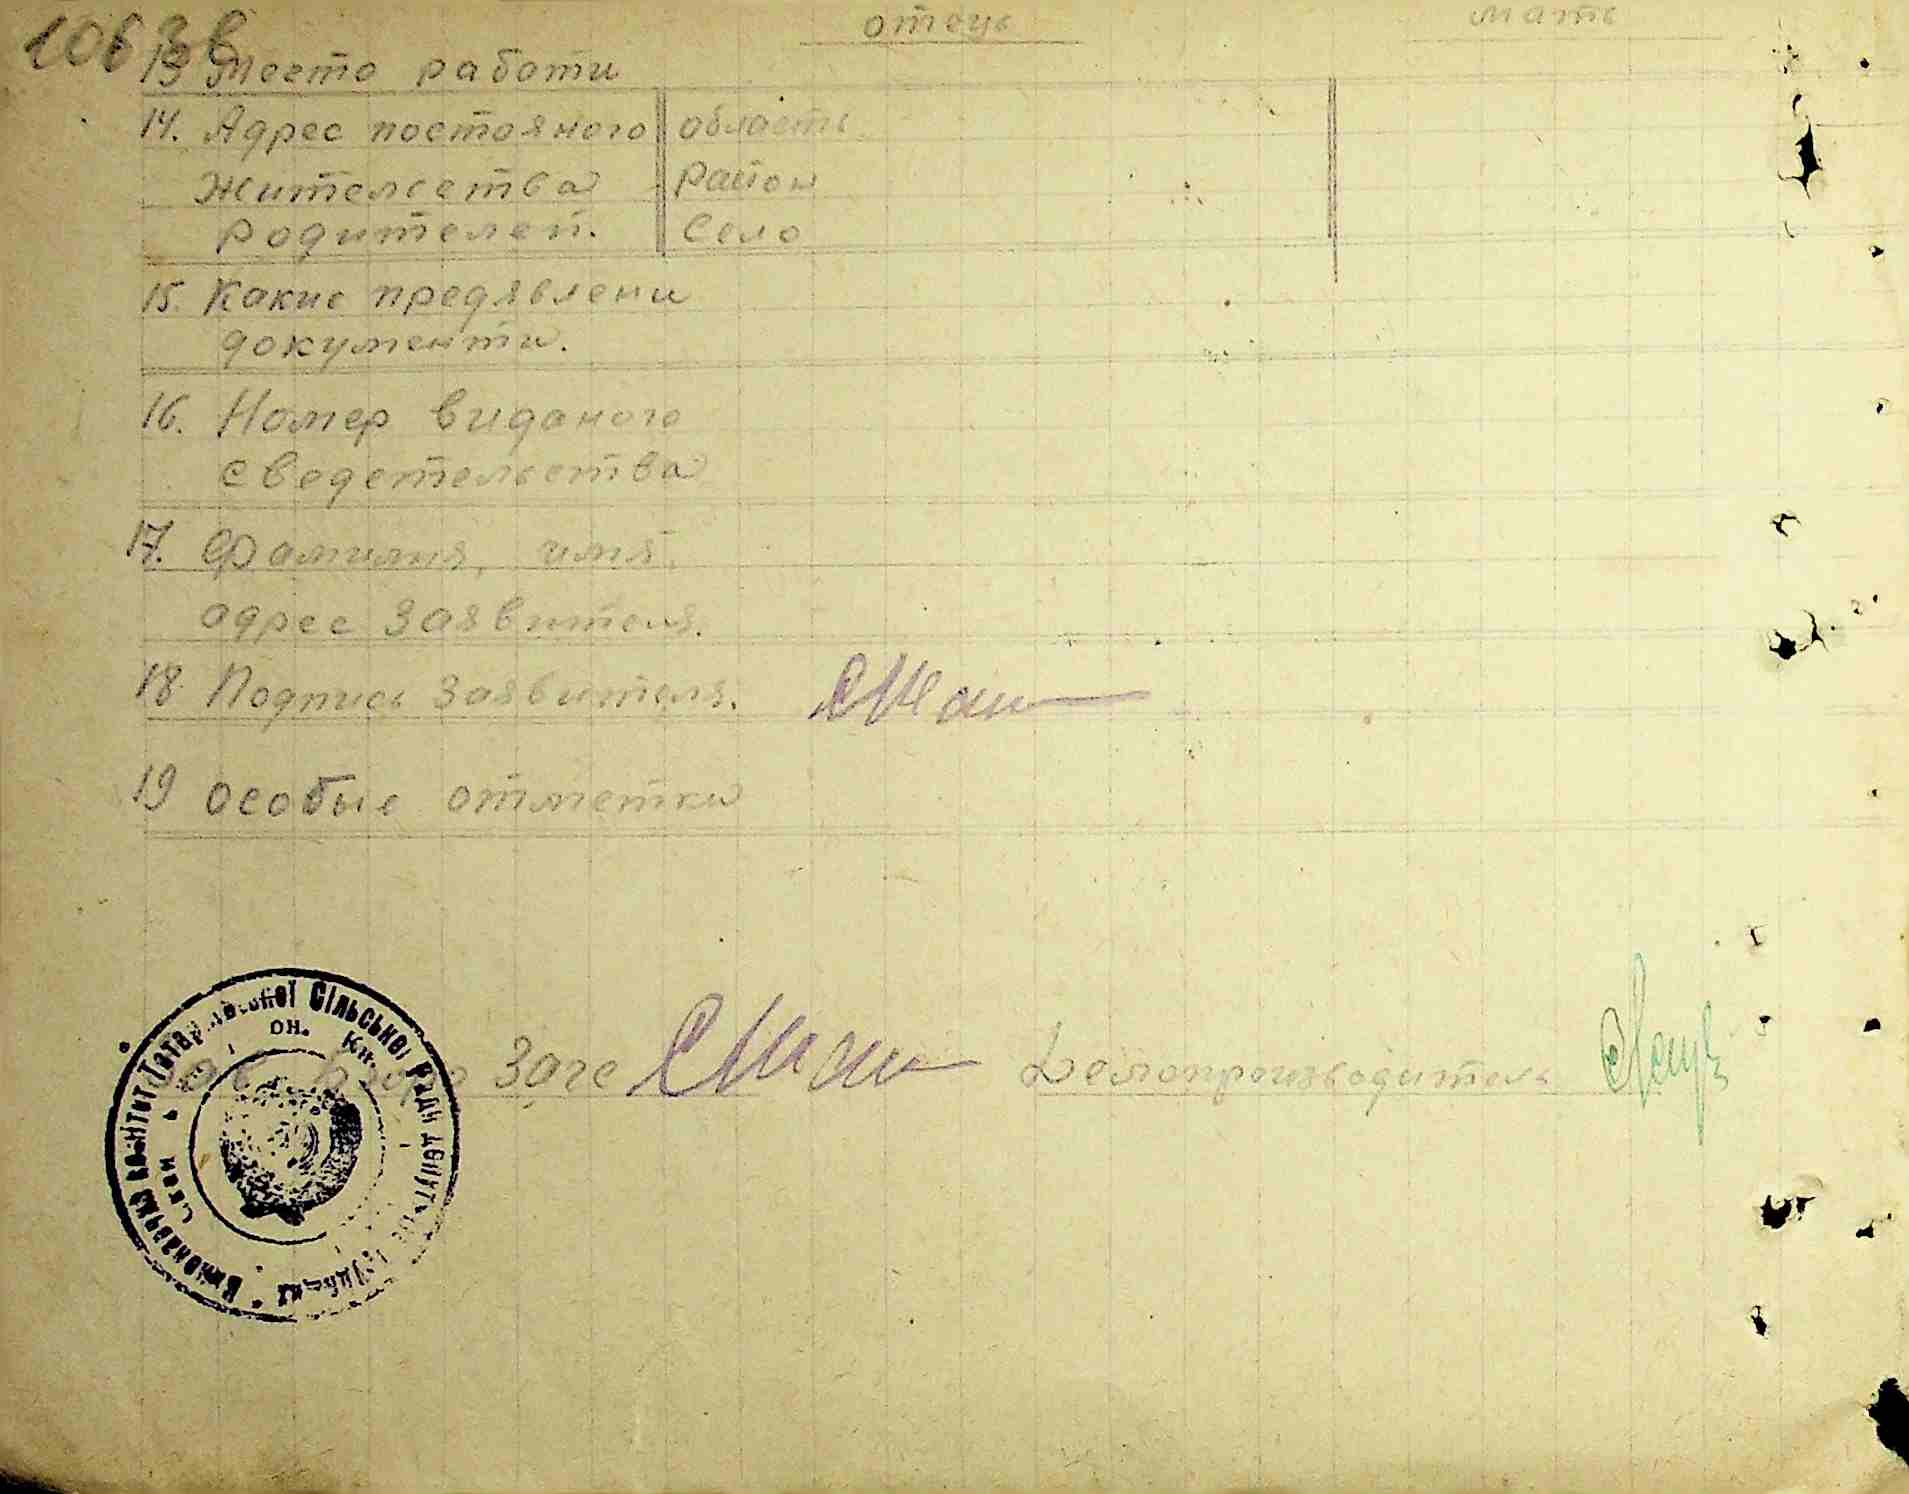 106 зв
отець
мать
13 Место работи
14. Адрес постояного
область
Жителсетва
Район
родителей.
Село
15. Какие предявлени
документи.
16. Номер виданого
сведетельства
17. Фамилия, имя,
адрес заявителя.
18 Подпись заявителя.
19 особые отметки
Зав. Бюро Загс
Делопроизводитель
Виконавчий комітет Сільської Ради депутатів трудящих